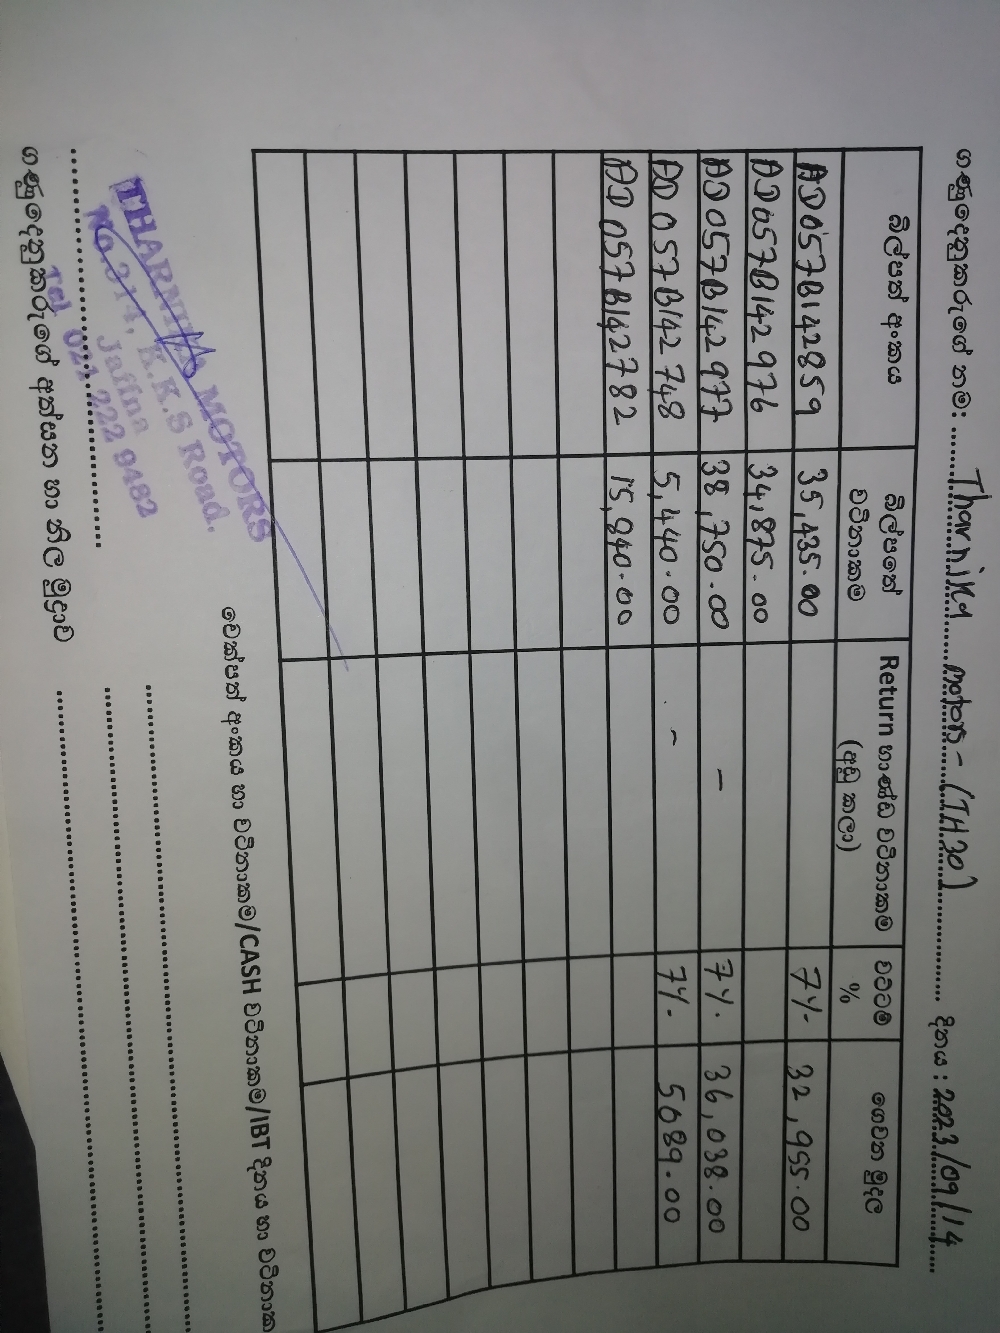 ගණුදෙනුකරුගේ නම: Tharnika motors - (TH30) දිනය : 2023/09/14
බිල්පත් අංකය බිල්පතේ වටිනාකම Return භාණ්ඩ වටිනාකම (අඩු කලා) වට්ටම් % ගෙවන මුදල
AD057B142859 35,435.00 7% 32,955.00
AD057B142976 34,875.00
AD057B142977 38,750.00 - 7% 36,038.00
AD057B142748 5,440.00 - 7% 5089.00
AD057B142782 15,940.00
චෙක්පත් අංකය හා වටිනාකම/CASH වටිනාකම/IBT දිනය හා වටිනාක
THARNIKA MOTORS
No.314, K.K.S Road.
Jaffna
Tel 021 222 9482
ගණුදෙනුකරුගේ අත්සන හා නිල මුද්‍රාව